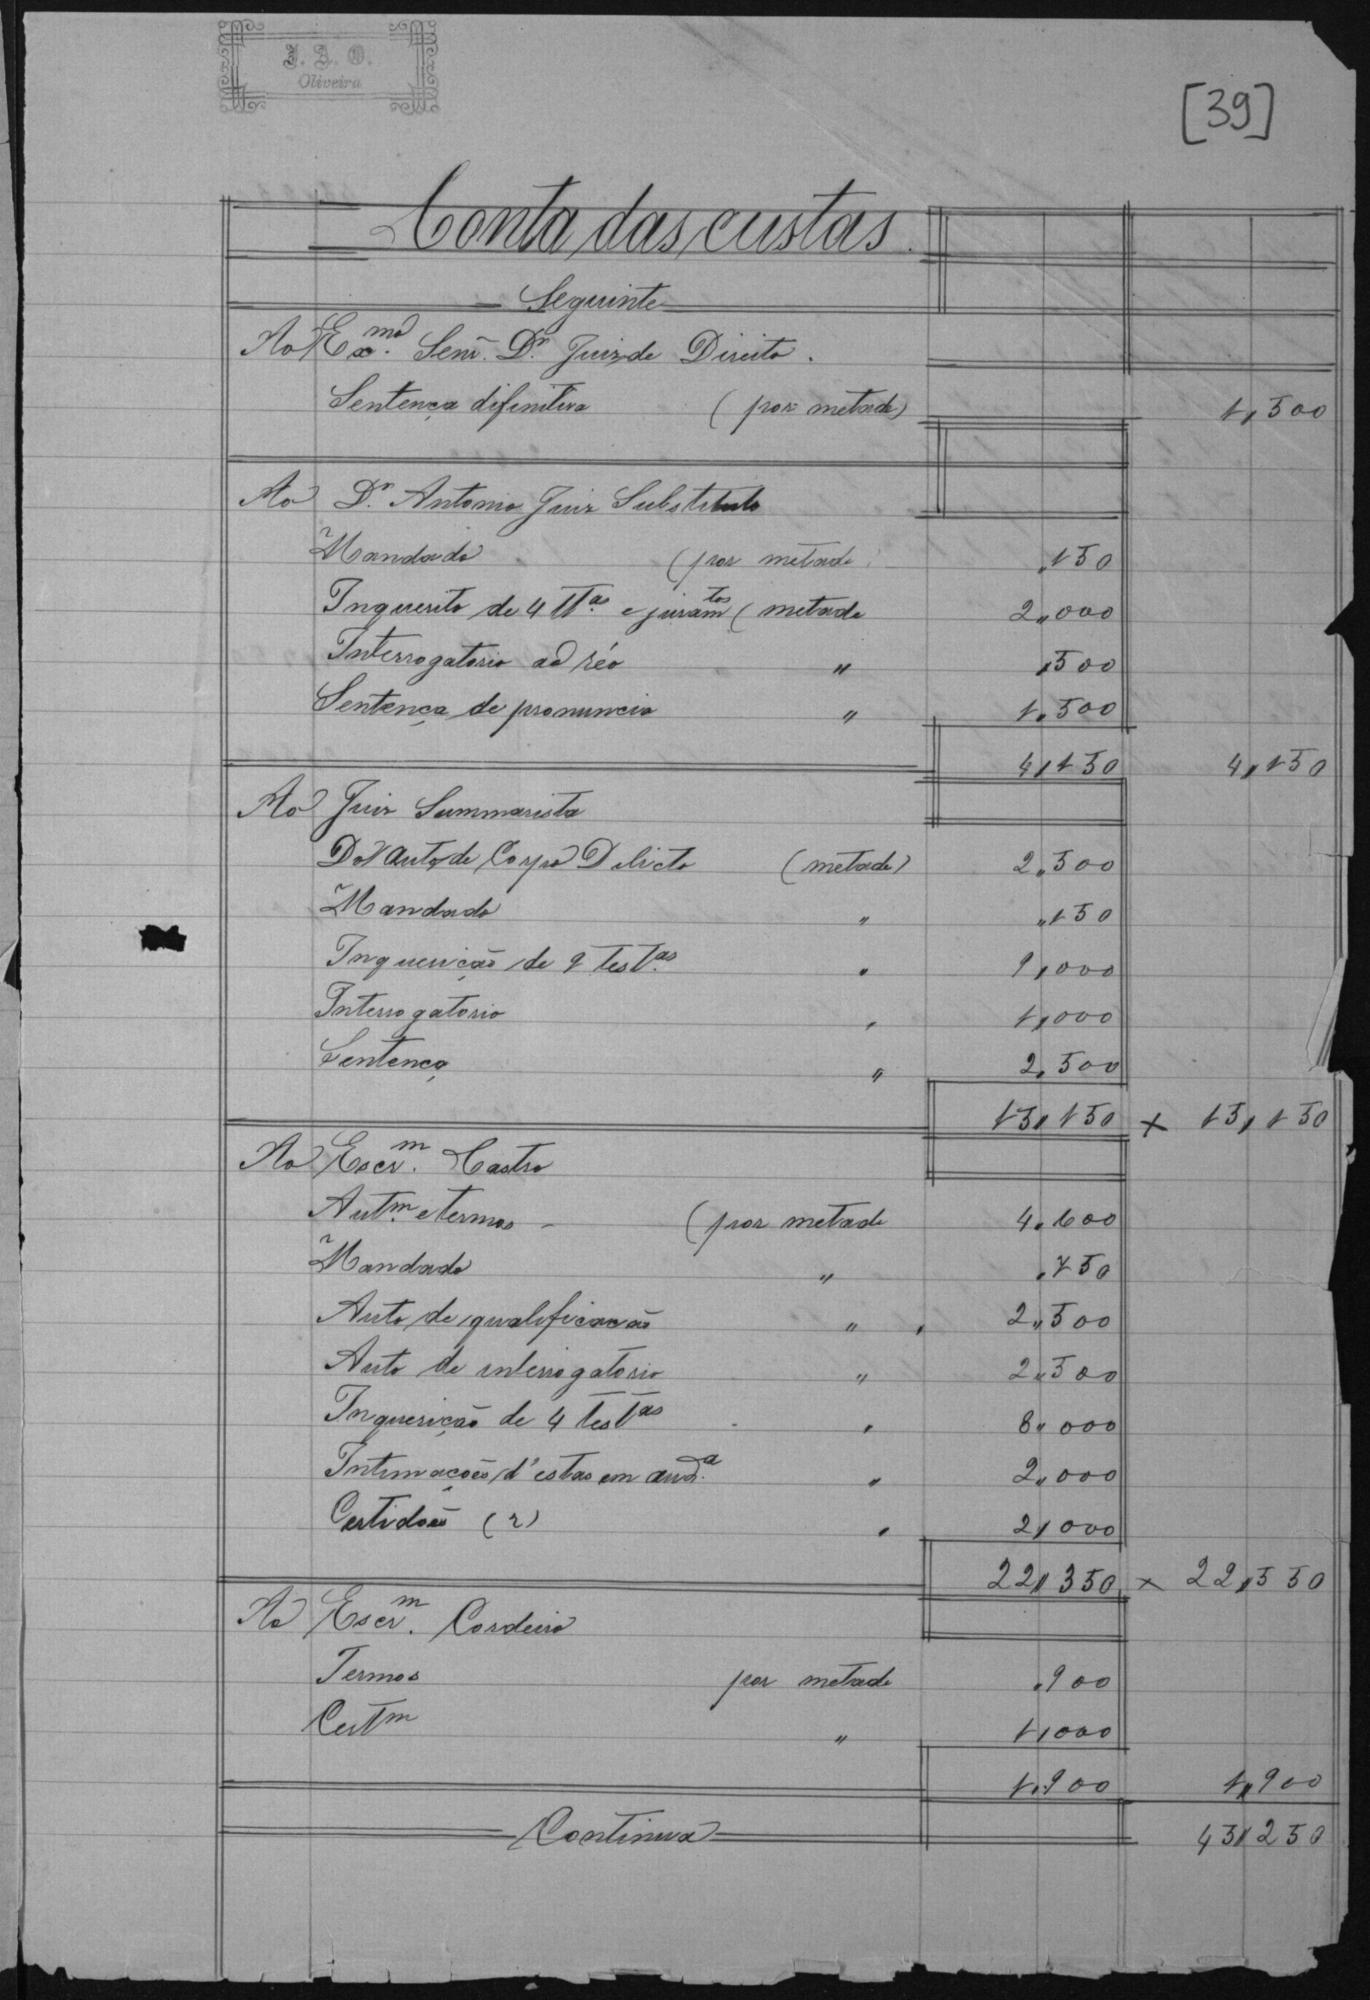 J. L. O.
Oliveira
[39]
Conta das custas
Seguinte
Ao Exmo. Senr. Dr. Juiz de Direito.
Sentença difinitiva (por metade) 1,500
Ao Dr. Antonio Juiz Substituto
Mandado (por metade ,150
Inquerito de 4 ttas. e juramtos (metade 2,,000
Interrogatorio ao réo " ,500
Sentença de pronuncia " 1.500
4,150 4,150
Ao Juiz Summarista
Do Auto de Corpo Delicto (metade) 2.500
Mandado " ,,150
Inquerição de 9 testas. " 9,000
Interrogatorio " 1,000
Sentença " 2.500
15,150 x 15,150
Ao Escrm. Castro
Autm. e termos - (por metade 4.600
Mandado " .750
Auto de qualificação " 2,,500
Auto de interrogatorio " 2,,500
Inquerição de 4 testas " 8,,000
Intimações d'estas em auda. " 2,,000
Certidões (2) " 2,000
22,,350 x 22,,550
Ao Escrm. Cordeiro
Termos por metade .900
Certm " 1,000
1.900 1,,900
Continua 45,250